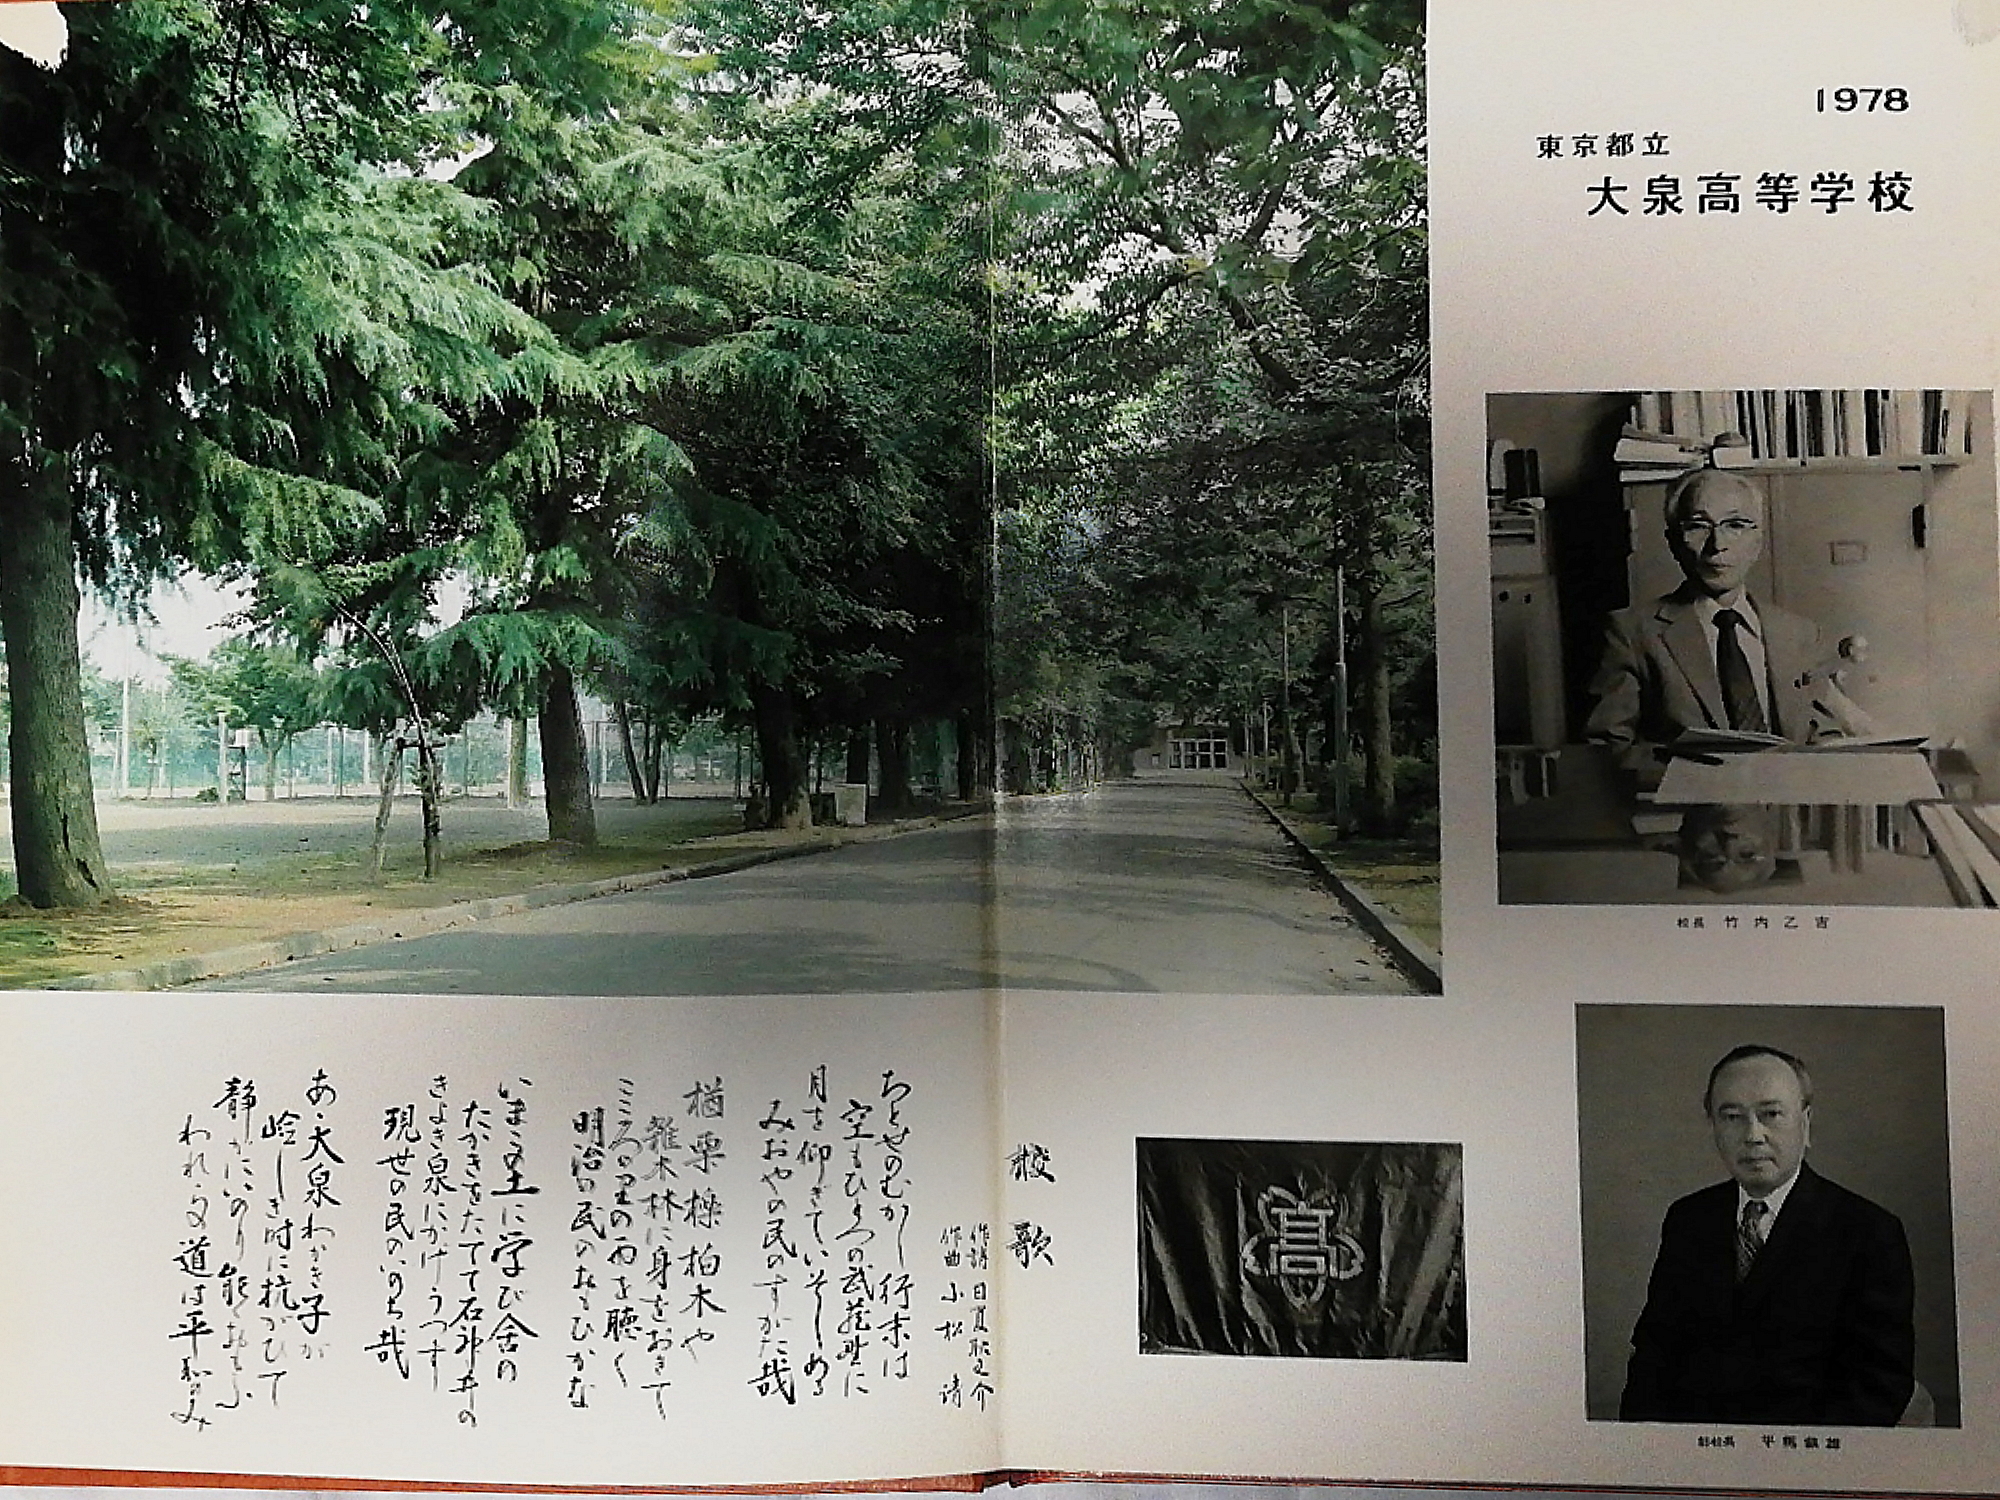 1978
東京都立
大泉高等学校
校長 竹内乙吉
副校長
高
校歌
作詩 日夏耿之介
作曲 小松 清
ちとせのむかし行末は
空もひとつの武蔵野に
月を仰ぎていそしめる
みおやの民のすがた哉
楢栗檪柏木や
雑木林に身をおきて
こころの里の雨を聴く
明治の民のおもひかな
いまこの土に学び舎の
たかきをたてて石神井の
きよき泉にかげうつす
現世の民のいのち哉
あゝ大泉わかき子が
嶮しき時に抗がひて
静かにいのり能くおもふ
われらの道は平和のみ